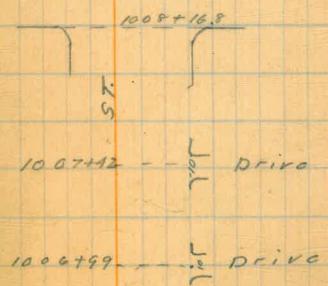 1008+16.8
ST.
1007+42 Drive
1006+99 Drive